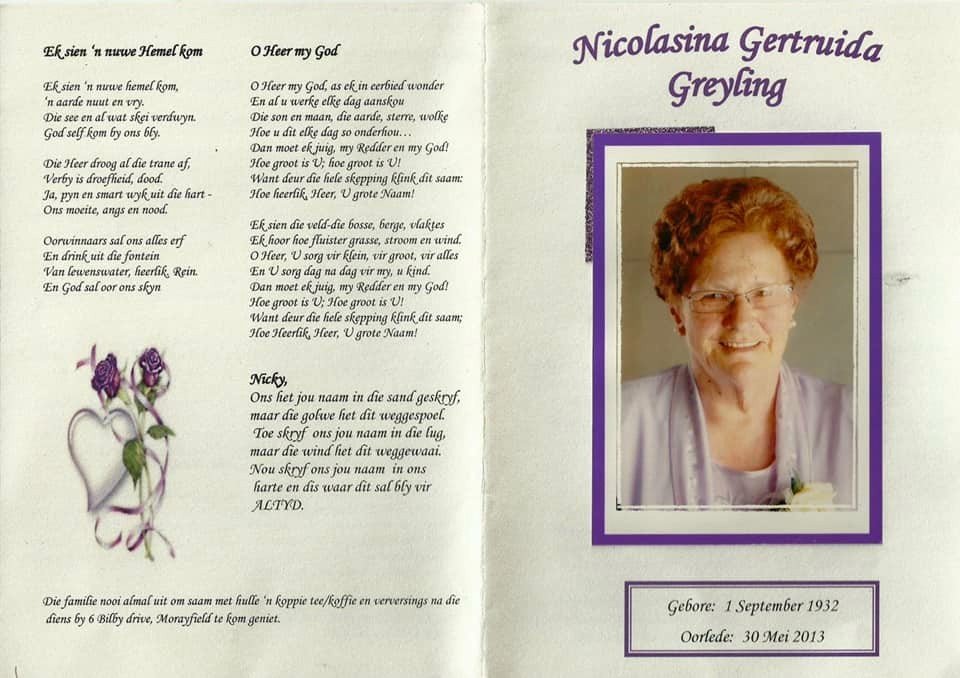 Ek sien ‘n nuwe Hemel kom
Ek sien ‘n nuwe hemel kom,
‘n aarde nuut en vry.
Die see en al wat skei verdwyn.
God self kom by ons bly.
Die Heer droog al die trane af,
Verby is droefheid, dood.
Ja, pyn en smart wyk uit die hart -
Ons moeite, angs en nood.
Oorwinnaars sal ons alles erf
En drink uit die fontein
Van lewenswater, heerlik. Rein.
En God sal oor ons skyn
O Heer my God
O Heer my God, as ek in eerbied wonder
En al u werke elke dag aanskou
Die son en maan, die aarde, sterre, wolke
Hoe u dit elke dag so onderhou…
Dan moet ek juig, my Redder en my God!
Hoe groot is U; hoe groot is U!
Want deur die hele skepping klink dit saam:
Hoe heerlik, Heer, U grote Naam!
Ek sien die veld-die bosse, berge, vlaktes
Ek hoor hoe fluister grasse, stroom en wind.
O Heer, U sorg vir klein, vir groot, vir alles
En U sorg dag na dag vir my, u kind.
Dan moet ek juig, my Redder en my God!
Hoe groot is U; Hoe groot is U!
Want deur die hele skepping klink dit saam;
Hoe Heerlik, Heer, U grote Naam!
Nicky,
Ons het jou naam in die sand geskryf,
maar die golwe het dit weggespoel.
Toe skryf ons jou naam in die lug,
maar die wind het dit weggewaai.
Nou skryf ons jou naam in ons
harte en dis waar dit sal bly vir
ALTYD.
Die familie nooi almal uit om saam met hulle ‘n koppie tee/koffie en verversings na die
diens by 6 Bilby drive, Morayfield te kom geniet.
Nicolasina Gertruida
Greyling
Gebore: 1 September 1932
Oorlede: 30 Mei 2013